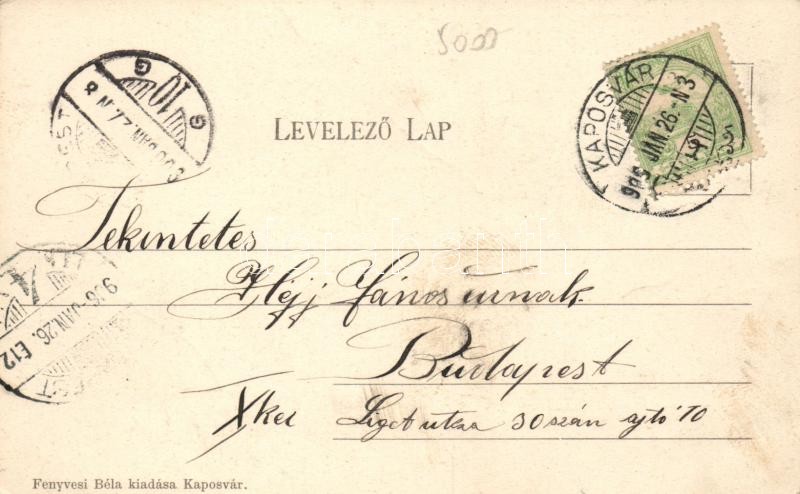 5000
LEVELEZŐ LAP
KAPOSVÁR
905 JAN 26. N 3
Tekintetes
Héjj János urnak
Budapest
X ker
Liget utca 30 szám ajtó 10
Fenyvesi Béla kiadása Kaposvár.